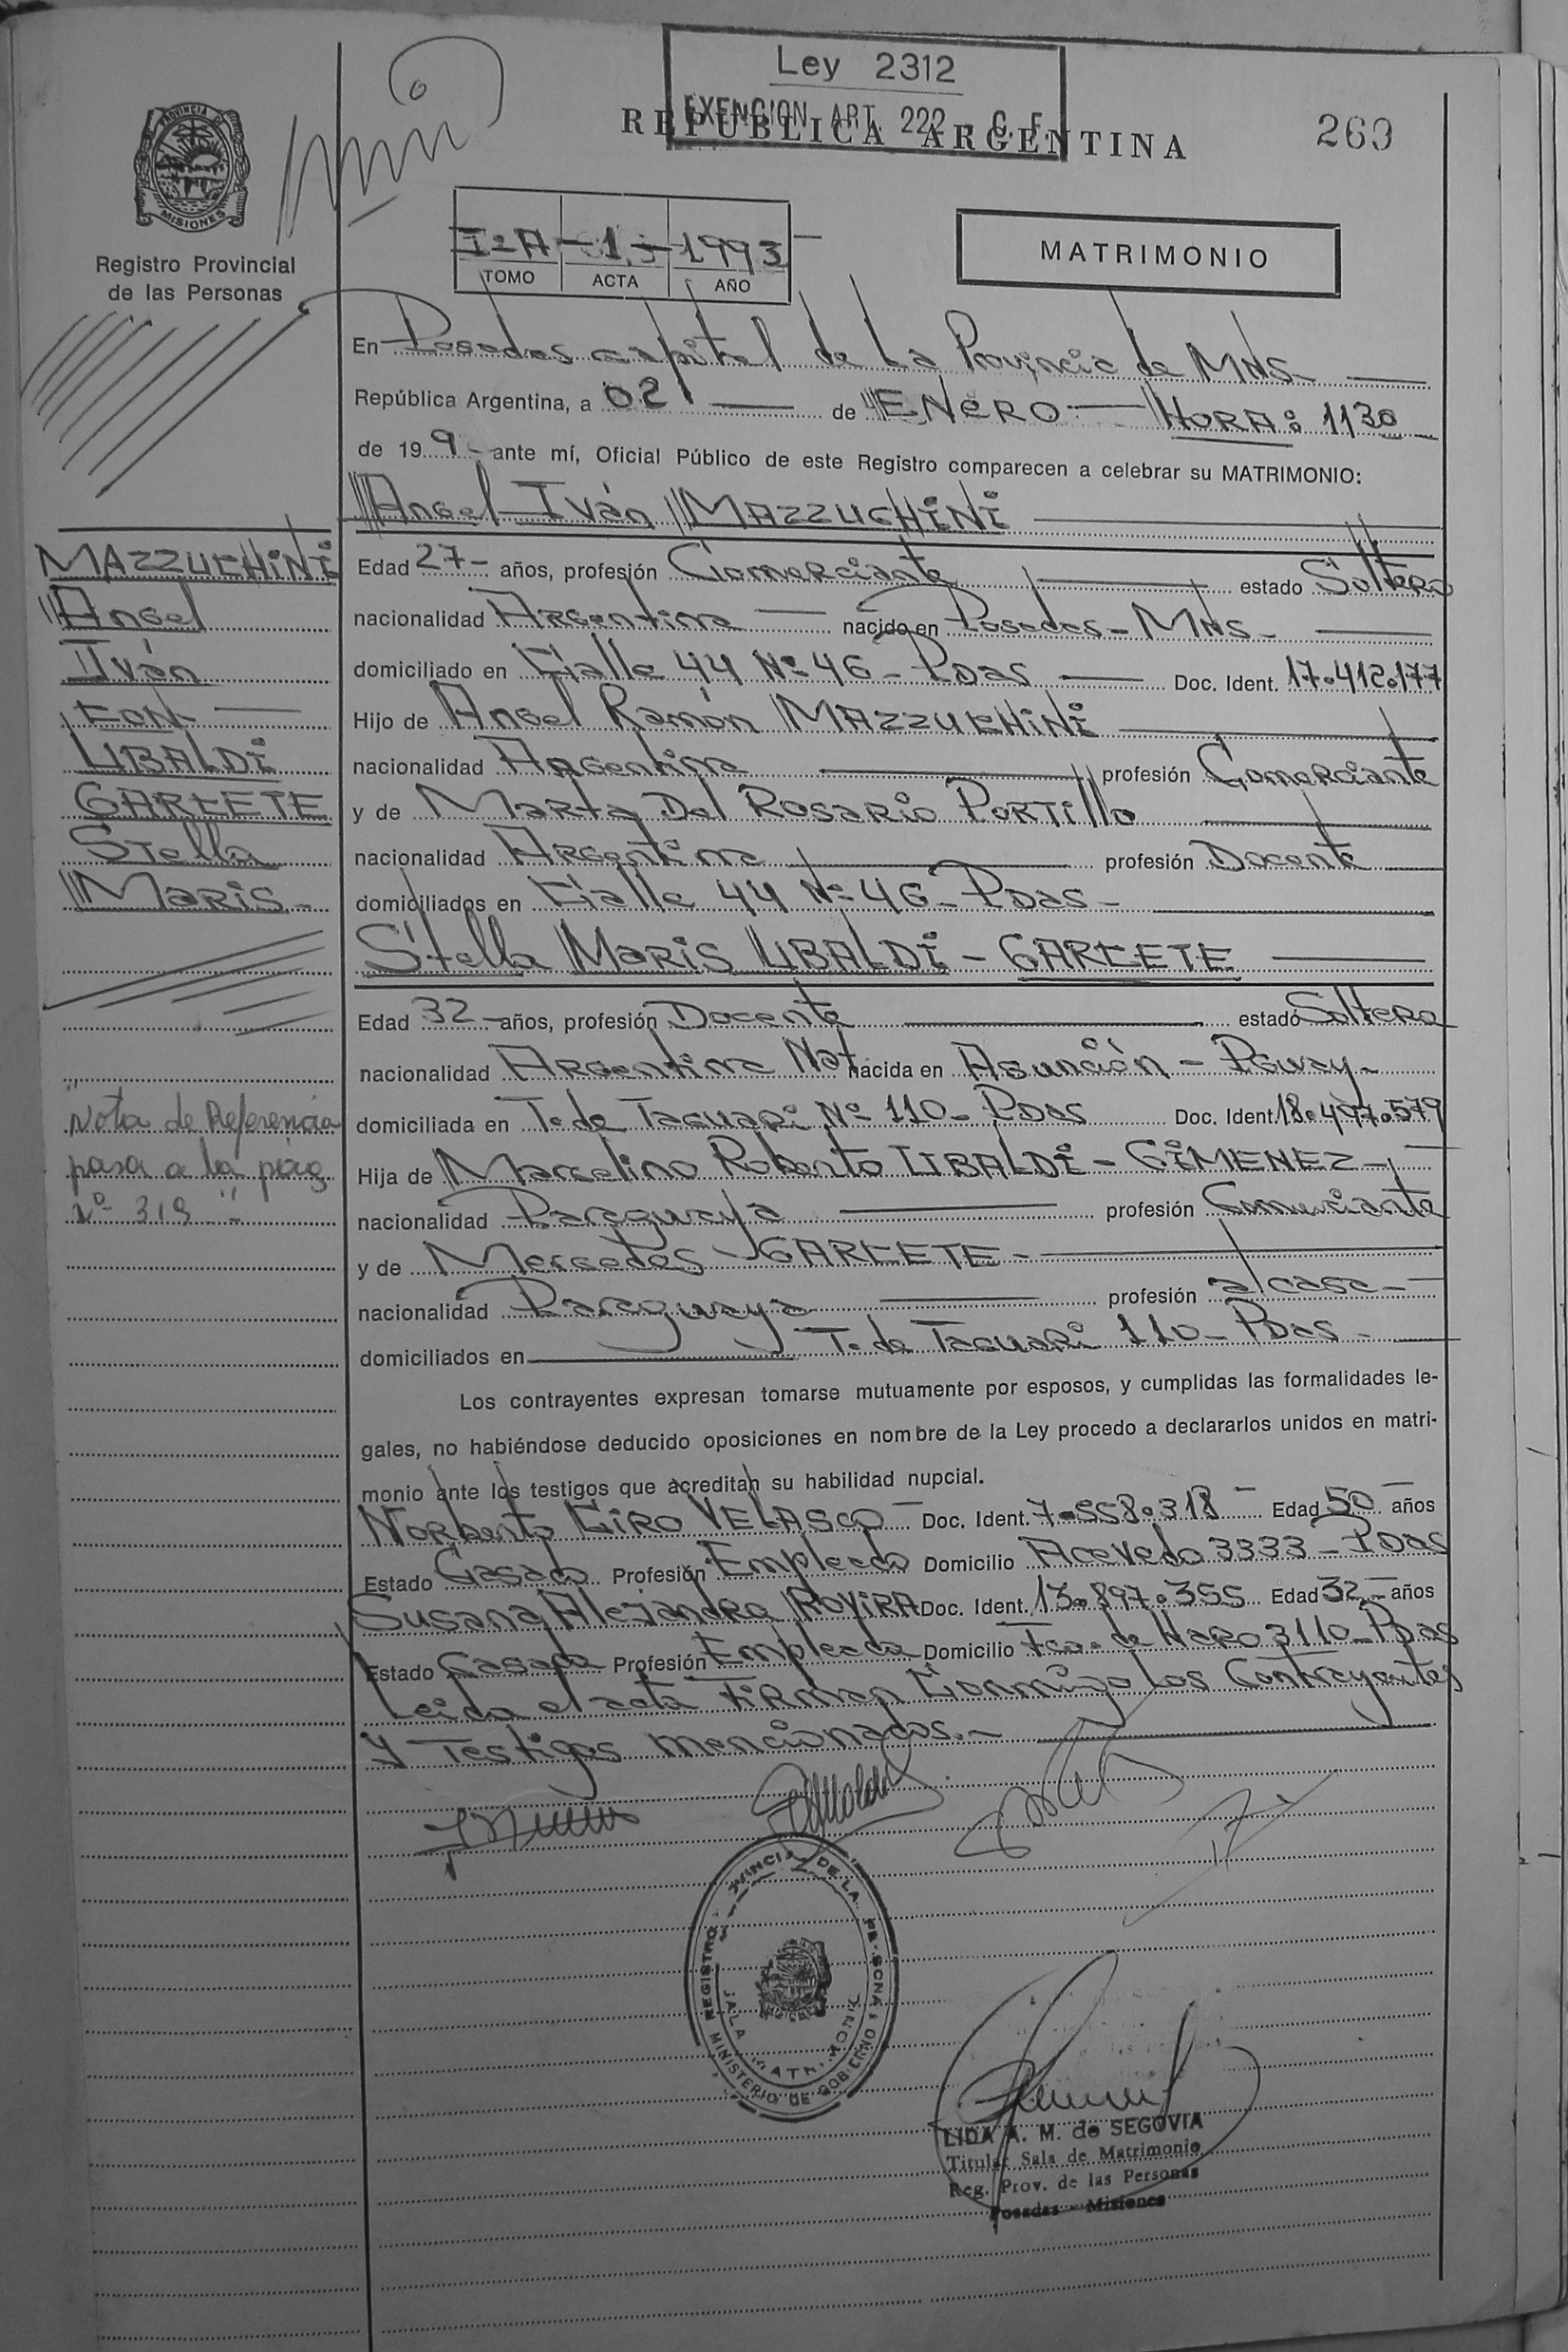 Ley 2312
EXENCION ART. 222 C. F.
REPUBLICA ARGENTINA
PROVINCIA DE
MISIONES
Registro Provincial
de las Personas
I-A - 1 - 1993
TOMO ACTA AÑO
MATRIMONIO
En Posadas capital de La Provincia de MNS
República Argentina, a 02 de ENERO HORA: 1130
de 19 9 ante mí, Oficial Público de este Registro comparecen a celebrar su MATRIMONIO:
Angel Iván MAZZUCHINI
MAZZUCHINI
Angel
Iván
con
UBALDI
GARCETE
Stella
Maris
Edad 27 años, profesión Comerciante estado Soltero
nacionalidad Argentina nacido en Posadas - MNS -
domiciliado en Calle 44 Nº 46 - PDAS Doc. Ident. 17.412.177
Hijo de Angel Ramón MAZZUCHINI
nacionalidad Argentina profesión Comerciante
y de Marta Del Rosario PORTILLO
nacionalidad Argentina profesión Docente
domiciliados en Calle 44 Nº 46 - PDAS -
Stella Maris UBALDI - GARCETE
Edad 32 años, profesión Docente estado Soltera
nacionalidad Argentina Nat. nacida en Asunción - PGUAY -
domiciliada en T. de Tacuari Nº 110 - PDAS Doc. Ident. 18.497.579
Hija de Marcelino Roberto UBALDI - GIMENEZ -
nacionalidad Paraguaya profesión Comerciante
y de Mercedes GARCETE -
nacionalidad Paraguaya profesión a/casa -
domiciliados en T. de Tacuari 110 - PDAS -
"Nota de Referencia
pasa a la pág
nº 319"
Los contrayentes expresan tomarse mutuamente por esposos, y cumplidas las formalidades le-
gales, no habiéndose deducido oposiciones en nombre de la Ley procedo a declararlos unidos en matri-
monio ante los testigos que acreditan su habilidad nupcial.
Norberto CIRO VELASCO Doc. Ident. 7.558.318 Edad 50 años
Estado Casado Profesión Empleado Domicilio Acevedo 3333 - PDAS
Susana Alejandra ROVIRA Doc. Ident. 13.897.355 Edad 32 años
Estado Casada Profesión Empleada Domicilio Fco. de Haro 3110 - PDAS
Leida el acta Firman Conmigo los Contrayentes
y Testigos mencionados. -
REGISTRO PROVINCIAL DE LAS PERSONAS
MINISTERIO DE GOBIERNO
SALA MATRIMONIO
LIDA A. M. de SEGOVIA
Titular Sala de Matrimonio
Reg. Prov. de las Personas
Posadas - Misiones